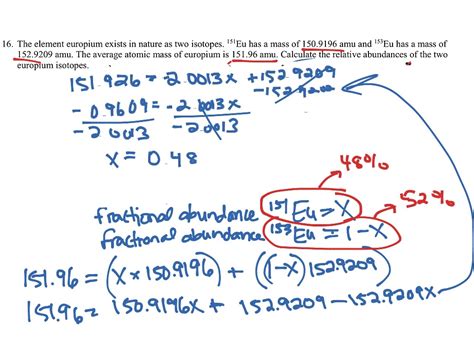 16. The element europium exists in nature as two isotopes. ¹⁵¹Eu has a mass of 150.9196 amu and ¹⁵³Eu has a mass of
152.9209 amu. The average atomic mass of europium is 151.96 amu. Calculate the relative abundances of the two
europium isotopes.
151.926 = -2.0013x + 152.9209
-152.9209
-0.9609 = -2.0013x
-2.0013 -2.0013
x = 0.48
48%
52%
fractional abundance ¹⁵¹Eu = X
fractional abundance ¹⁵³Eu = 1-X
151.96 = (X × 150.9196) + ((1-X)152.9209)
151.96 = 150.9196X + 152.9209 - 152.9209X